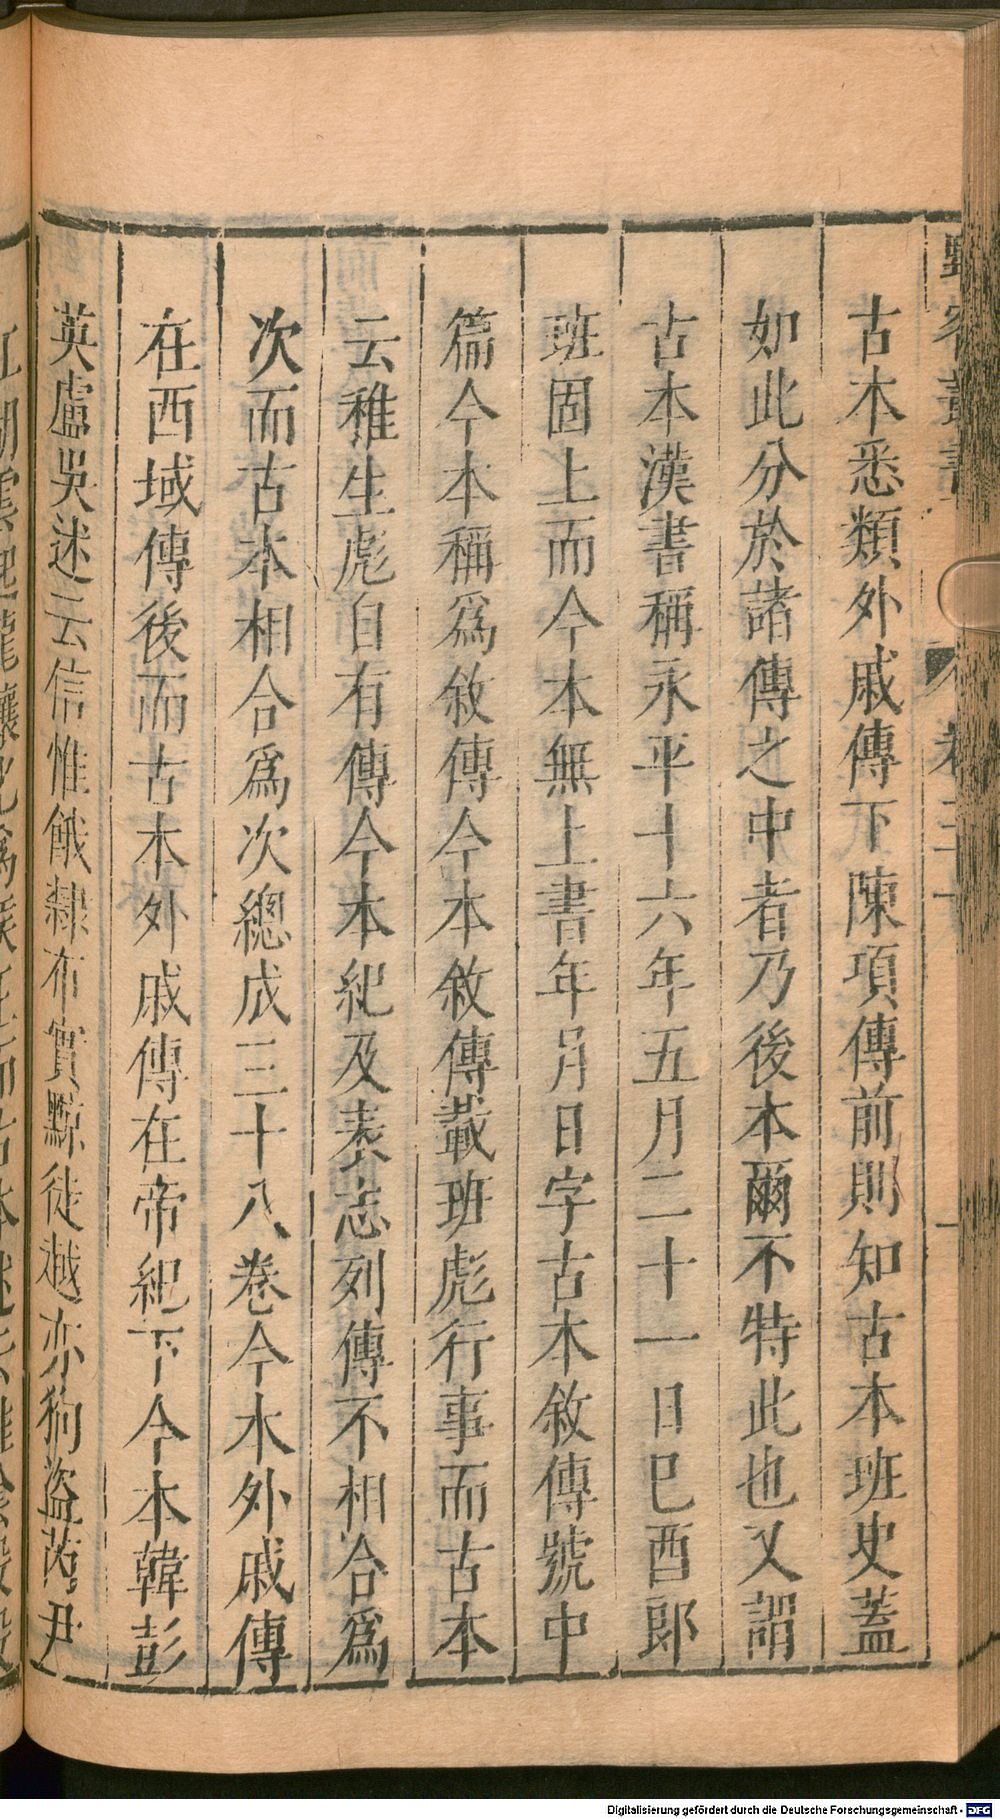 古本悉類外戚傳下陳項傳前則知古本班史蓋
如此分於諸傳之中者乃後本爾不特此也又謂
古本漢書稱永平十六年五月二十一日巳酉郎
班固上而今本無上書年月日字古本敘傳號中
篇今本稱爲敘傳今本敘傳載班彪行事而古本
云稚生彪自有傳今本紀及表志列傳不相合爲
次而古本相合爲次總成三十八卷今本外戚傳
在西域傳後而古本外戚傳在帝紀下今本韓彭
英盧吳述云信惟餓隸布實黥徒越亦狗盜芮尹
Digitalisierung gefördert durch die Deutsche Forschungsgemeinschaft - DFG